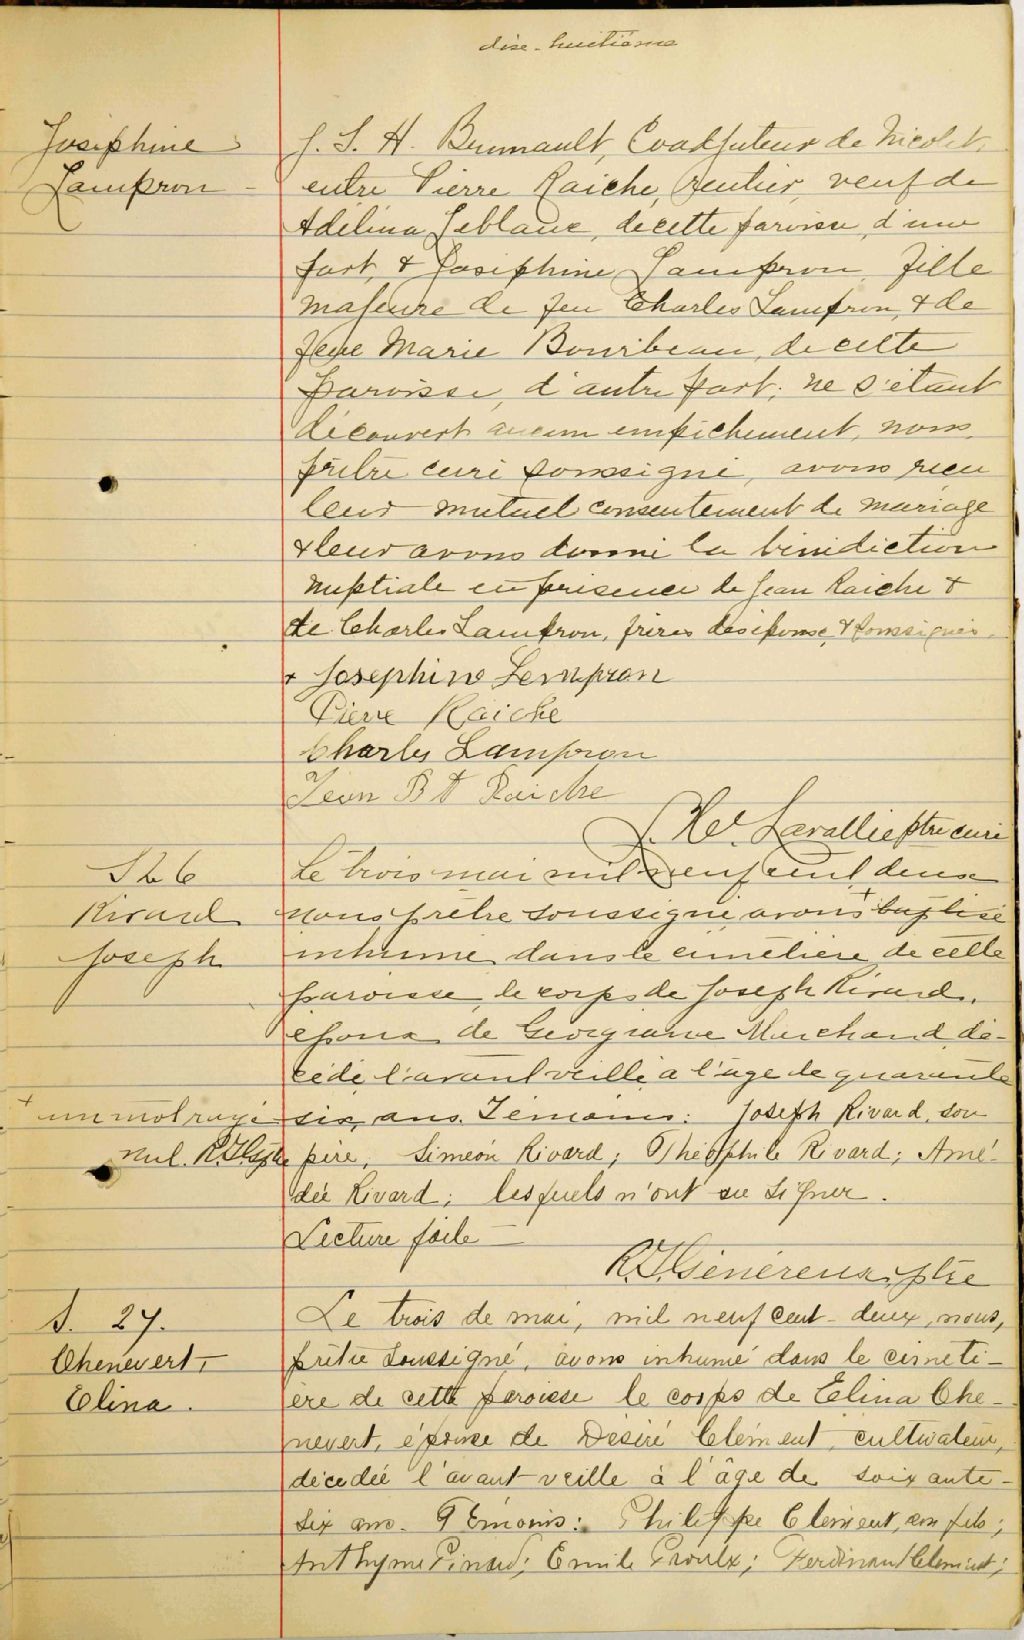 dixe-huitième
Josephine
Lampron
J. S. H. Brunault, Coadjuteur de Nicolet,
entre Pierre Raiche, rentier, veuf de
Adélina Leblanc, de cette paroisse, d'une
part, & Josephine Lampron, fille
majeure de feu Charles Lampron, & de
feue Marie Bourbeau, de cette
paroisse, d'autre part; ne s'étant
découvert aucun empêchement, nous,
prêtre curé soussigné, avons reçu
leur mutuel consentement de mariage
& leur avons donné la bénédiction
nuptiale en présence de Jean Raiche &
de Charles Lampron, frères des époux, & soussignés.
+ Josephine Lempron
Pierre Raiche
Charles Lampron
Jean Bt Raiche
Lavallée ptre curé
S 26
Rivard
Joseph
Le trois mai mil neuf cent deux
nous prêtre soussigné, avons + baptisé
inhumé dans le cimetière de cette
paroisse, le corps de Joseph Rivard,
époux de Georgianne Marchand, dé-
cédé l'avant veille, à l'âge de quarante
six, ans. Témoins: Joseph Rivard, son
+ un mot rayé
nul. R.T.G. ptre
père, Siméon Rivard; Théophile Rivard; Amé-
dée Rivard; lesquels n'ont su signer.
Lecture faite —
R.T. Généreux, ptre
S. 27.
Chenevert,
Elina.
Le trois de mai, mil neuf cent-deux, nous,
prêtre soussigné, avons inhumé dans le cimeti-
ère de cette paroisse le corps de Elina Che-
nevert, épouse de Désiré Clément, cultivateur,
décédée l'avant-veille à l'âge de soixante-
six ans. Témoins: Philippe Clément, son fils;
Anthyme Pinard; Emile Proulx; Ferdinand Clément;